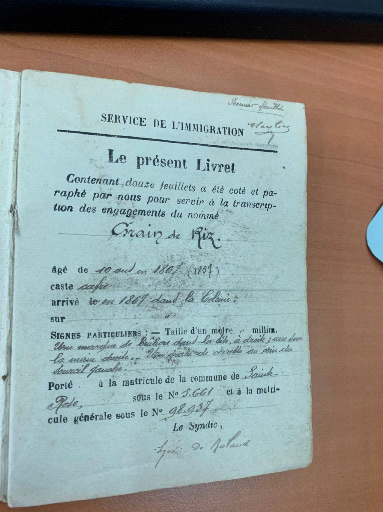 Premier feuillet
SERVICE DE L'IMMIGRATION
Le présent Livret
Contenant douze feuillets a été coté et pa-
raphé par nous pour servir à la transcrip-
tion des engagements du nommé
Grain de Riz
âgé de 10 ans en 1867 (1857)
caste cafre
arrivé le en 1867 dans la Colonie
sur "
SIGNES PARTICULIERS : — Taille d'un mètre " millim.
Une marque de brûlure dans la tête à droite, une sur
la main droite. Une
sourcil gauche.
Porté à la matricule de la commune de Sainte
Rose, sous le N° 5.661 et à la matri-
cule générale sous le N° 98.937
Le Syndic,